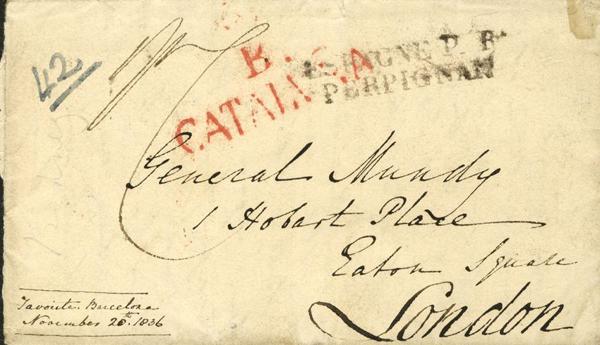 42
B.
CATALUÑA
ESPAGNE P. B.
PERPIGNAN
General Mundy
1 Hobart Place
Eaton Square
London
Favorite. Barcelona
November 25th 1836